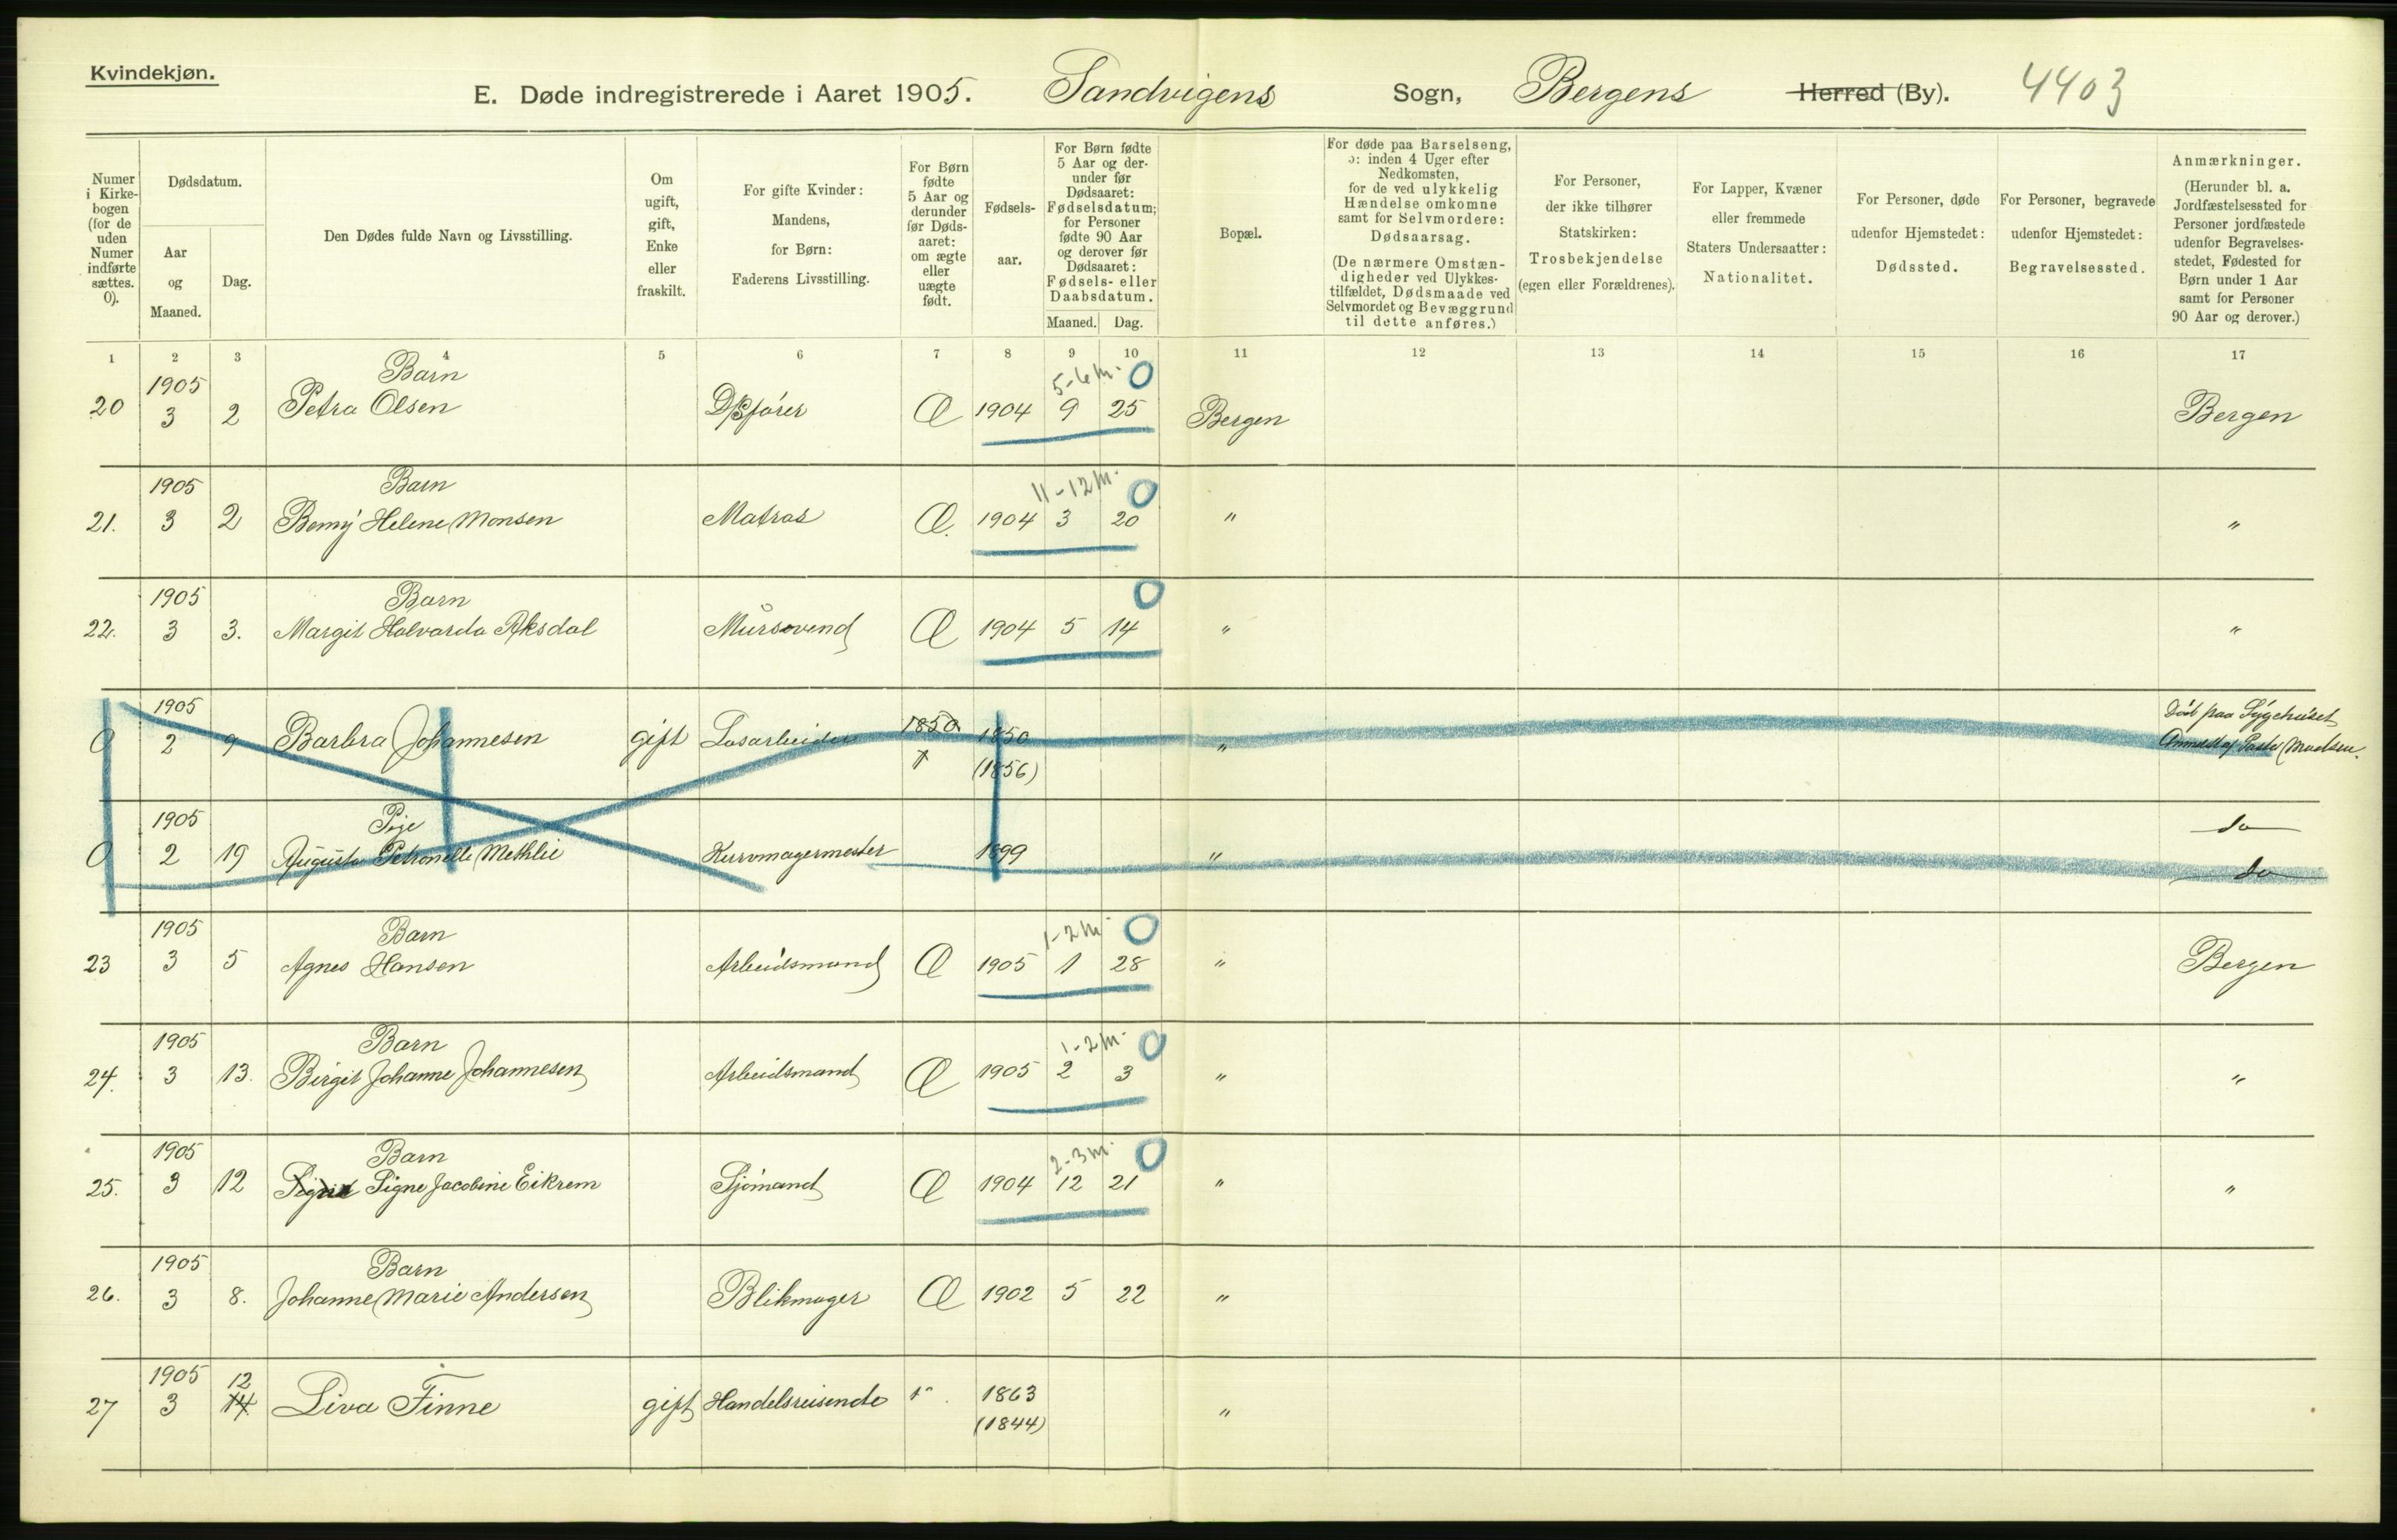 Kvindekjøn.
E. Døde indregistrerede i Aaret 1905. Sandvigens Sogn, Bergens Herred (By). 4403
Numer i Kirkebogen (for de uden Numer indførte sættes. 0).
Dødsdatum.
Aar og Maaned.
Dag.
Den Dødes fulde Navn og Livsstilling.
Om ugift, gift, Enke eller fraskilt.
For gifte Kvinder: Mandens, for Børn: Faderens Livsstilling.
For Børn fødte 5 Aar og derunder før Dødsaaret: om ægte eller uægte født.
Fødselsaar.
For Børn fødte 5 Aar og derunder før Dødsaaret: Fødselsdatum; for Personer fødte 90 Aar og derover før Dødsaaret: Fødsels- eller Daabsdatum.
Maaned. Dag.
Bopæl.
For døde paa Barselseng, ɔ: inden 4 Uger efter Nedkomsten, for de ved ulykkelig Hændelse omkomne samt for Selvmordere: Dødsaarsag. (De nærmere Omstændigheder ved Ulykkestilfældet, Dødsmaade ved Selvmordet og Bevæggrund til dette anføres.)
For Personer, der ikke tilhører Statskirken: Trosbekjendelse (egen eller Forældrenes).
For Lapper, Kvæner eller fremmede Staters Undersaatter: Nationalitet.
For Personer, døde udenfor Hjemstedet: Dødssted.
For Personer, begravede udenfor Hjemstedet: Begravelsessted.
Anmærkninger. (Herunder bl. a. Jordfæstelsessted for Personer jordfæstede udenfor Begravelsesstedet, Fødested for Børn under 1 Aar samt for Personer 90 Aar og derover.)
1 2 3 4 5 6 7 8 9 10 11 12 13 14 15 16 17
1905 Barn 5-6 m. 0
20 3 2 Petra Olsen D/Sfører Æ 1904 9 25 Bergen Bergen
1905 Barn 11-12 m. 0
21. 3 2 Bemy Helene Monsen Matros Æ. 1904 3 20 " "
1905 Barn 0
22. 3 3. Margit Halvarda Aksdal Mursvend Æ 1904 5 14 " "
1905 1850 Død paa Sygehuset
0 2 9 Barbra Johannesen gift Losarbeider 1850 "
(1856)
1905 Pige do
0 2 19 Augusta Petronelle Methlie Kurvmagermester 1899 " do
1905 Barn 1-2 m 0
23 3 5 Agnes Hansen Arbeidsmand Æ 1905 1 28 " Bergen
1905 Barn 1-2 m. 0
24. 3 13. Birgit Johanne Johannesen Arbeidsmand Æ 1905 2 3 " "
1905 Barn 2-3 m. 0
25. 3 12 Sigrid Signe Jacobine Eikrem Sjømand Æ 1904 12 21 " "
1905 Barn
26. 3 8. Johanne Marie Andersen Blikmager Æ 1902 5 22 "
1905 12
27 3 14 Liva Finne gift Handelsreisende 1863 "
(1844)